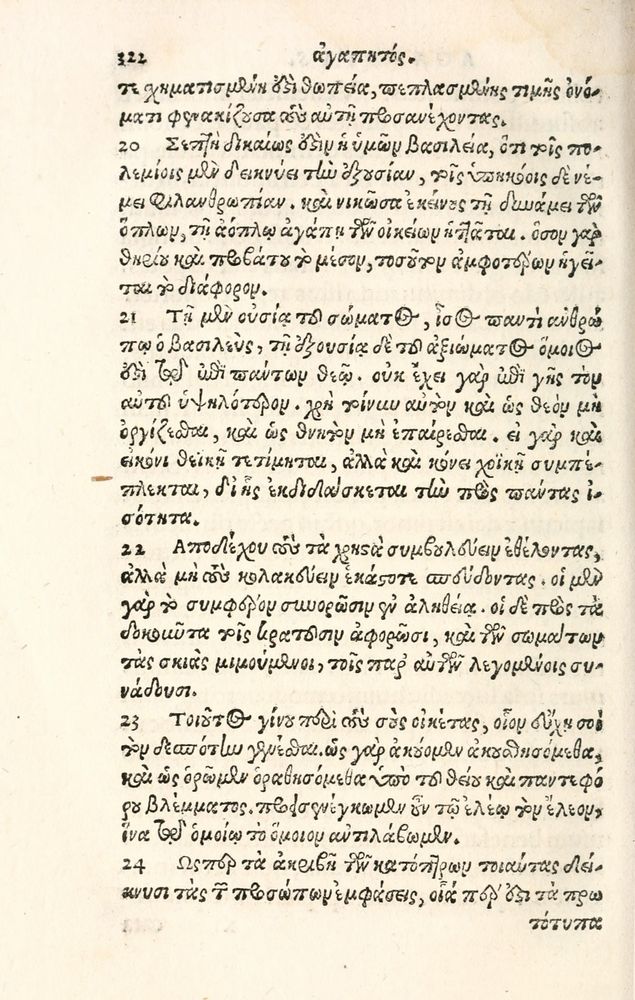 322 ἀγαπητός.
τε χηματισμένη ἐστὶ θωπεία, πεπλασμένης τιμῆς ὀνό-
ματι φενακίζουσα τοὺς αὐτῇ προσανέχοντας.
20 Σεπτὴ δικαίως ἐστὶν ἡ ὑμῶν βασιλεία, ὅτι τοῖς πο-
λεμίοις μὲν δεικνύει τὴν ἐξουσίαν, τοῖς ὑπηκόοις δὲ νέ-
μει φιλανθρωπίαν. καὶ νικῶσα ἐκείνους τῇ δυνάμει τῶν
ὅπλων, τῇ ἀόπλῳ ἀγάπῃ τῶν οἰκείων ἡττᾶται. ὅσον γὰρ
θηρίου καὶ προβάτου τὸ μέσον, τοσοῦτον ἀμφοτέρων ἡγεῖ-
ται τὸ διάφορον.
21 Τῇ μὲν οὐσίᾳ τοῦ σώματος, ἶσος παντὶ ἀνθρώ
πῳ ὁ βασιλεὺς, τῇ ἐξουσίᾳ δὲ τοῦ ἀξιώματος ὅμοιός
ἐστι τῷ ἐπὶ πάντων θεῷ. οὐκ ἔχει γὰρ ἐπὶ γῆς τὸν
αὐτοῦ ὑψηλότερον. χρὴ τοίνυν αὐτὸν καὶ ὡς θεὸν μὴ
ὀργίζεσθαι, καὶ ὡς θνητὸν μὴ ἐπαίρεσθαι. εἰ γὰρ καὶ
εἰκόνι θεϊκῇ τετίμηται, ἀλλὰ καὶ κόνει χοϊκῇ συμπέ-
πλεκται, δι ἧς ἐκδιδάσκεται τὴν πρὸς πάντας ἰ-
σότητα.
22 Αποδέχου τοὺς τὰ χρηστὰ συμβουλεύειν ἐθέλοντας,
ἀλλὰ μὴ τοὺς κολακεύειν ἑκάστοτε σπεύδοντας. οἱ μὲν
γὰρ τὸ συμφέρον συνορῶσιν ἐν ἀληθείᾳ. οἱ δὲ πρὸς τὰ
δοκοῦντα τοῖς κρατοῦσιν ἀφορῶσι, καὶ τῶν σωμάτων
τὰς σκιὰς μιμούμενοι, τοῖς παρ αὐτῶν λεγομένοις συ-
νᾴδουσι.
23 Τοιοῦτος γίνου περὶ τοὺς σοὺς οἰκέτας, οἷον εὔχῃ σοι
τὸν δεσπότην γενέσθαι. ὡς γὰρ ἀκούομεν ἀκουσθησόμεθα,
καὶ ὡς ὁρῶμεν ὁραθησόμεθα ὑπὸ τοῦ θείου καὶ παντεφό
ρου βλέμματος. προεισενέγκωμεν οὖν τῷ ἐλέῳ τὸν ἔλεον,
ἵνα τῷ ὁμοίῳ τὸ ὅμοιον ἀντιλάβωμεν.
24 Ωςπερ τὰ ἀκριβῆ τῶν κατόπτρων τοιαύτας δεί-
κνυσι τὰς τῶν προσώπων ἐμφάσεις, οἷά περ ἐστὶ τὰ πρω
τότυπα